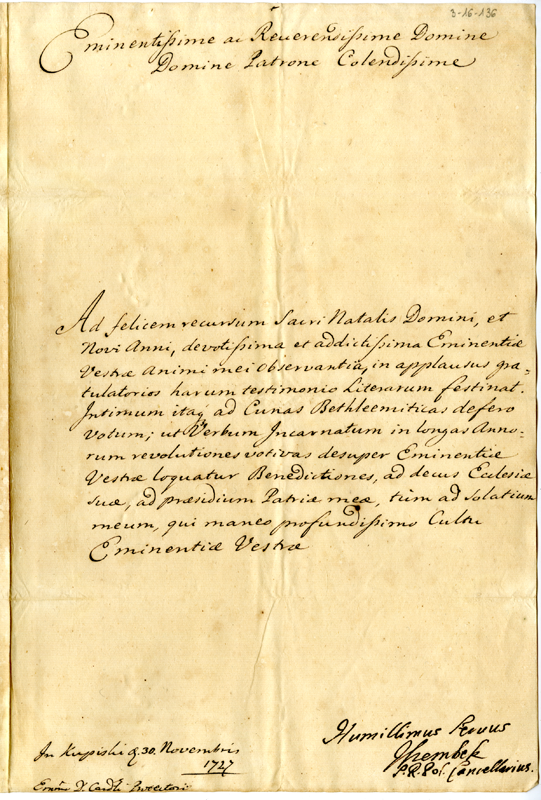 3-16-136
Eminentissime ac Reverendissime Domine
Domine Patrone Colendissime
Ad felicem recursum Sacri Natalis Domini, et
Novi Anni, devotissima et addictissima Eminentiæ
Vestræ Animi mei Observantia, in applausus gra-
tulatorios harum testimonio Literarum festinat.
Intimum itaq ad Cunas Bethleemiticas defero
votum; ut Verbum Incarnatum in longas Anno-
rum revolutiones votivas desuper Eminentiæ
Vestræ loquatur Benedictiones, ad decus Ecclesiæ
suæ, ad præsidium Patriæ meæ, tùm ad solatium
meum, qui maneo profundissimo Cultu
Eminentiæ Vestræ
Humillimus Servus
Szembek
S.R. Pol. Cancellarius.
In Kupiski d. 30. Novembris
1727
Emin̄o D. Cardli Protectori